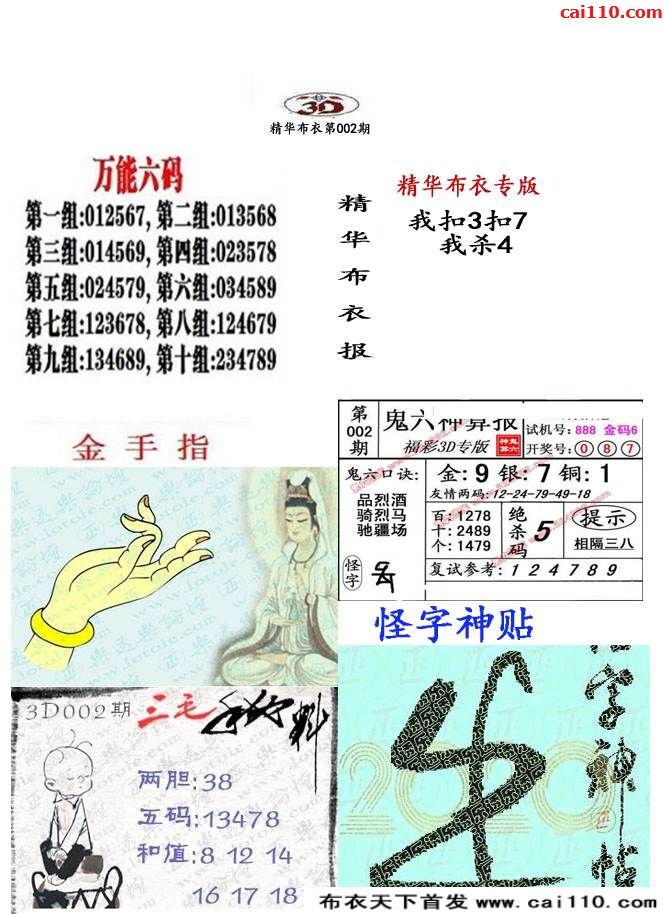 cai110.com
3D
精华布衣第002期
万能六码
第一组:012567, 第二组:013568
第三组:014569, 第四组:023578
第五组:024579, 第六组:034589
第七组:123678, 第八组:124679
第九组:134689, 第十组:234789
精华布衣报
精华布衣专版
我扣3扣7
我杀4
金手指
第002期
鬼六神算报
福彩3D专版
试机号:888 金码6
开奖号:087
鬼六口诀:
品烈酒
骑烈马
驰疆场
怪字
金:9银:7铜:1
友情两码:12-24-79-49-18
百:1278
十:2489
个:1479
绝杀码
5
提示
相隔三八
复试参考:124789
怪字神贴
3D002期
三毛
两胆:38
五码:13478
和值:8 12 14
16 17 18
2020
字神帖
布衣天下首发 www.cai110.com